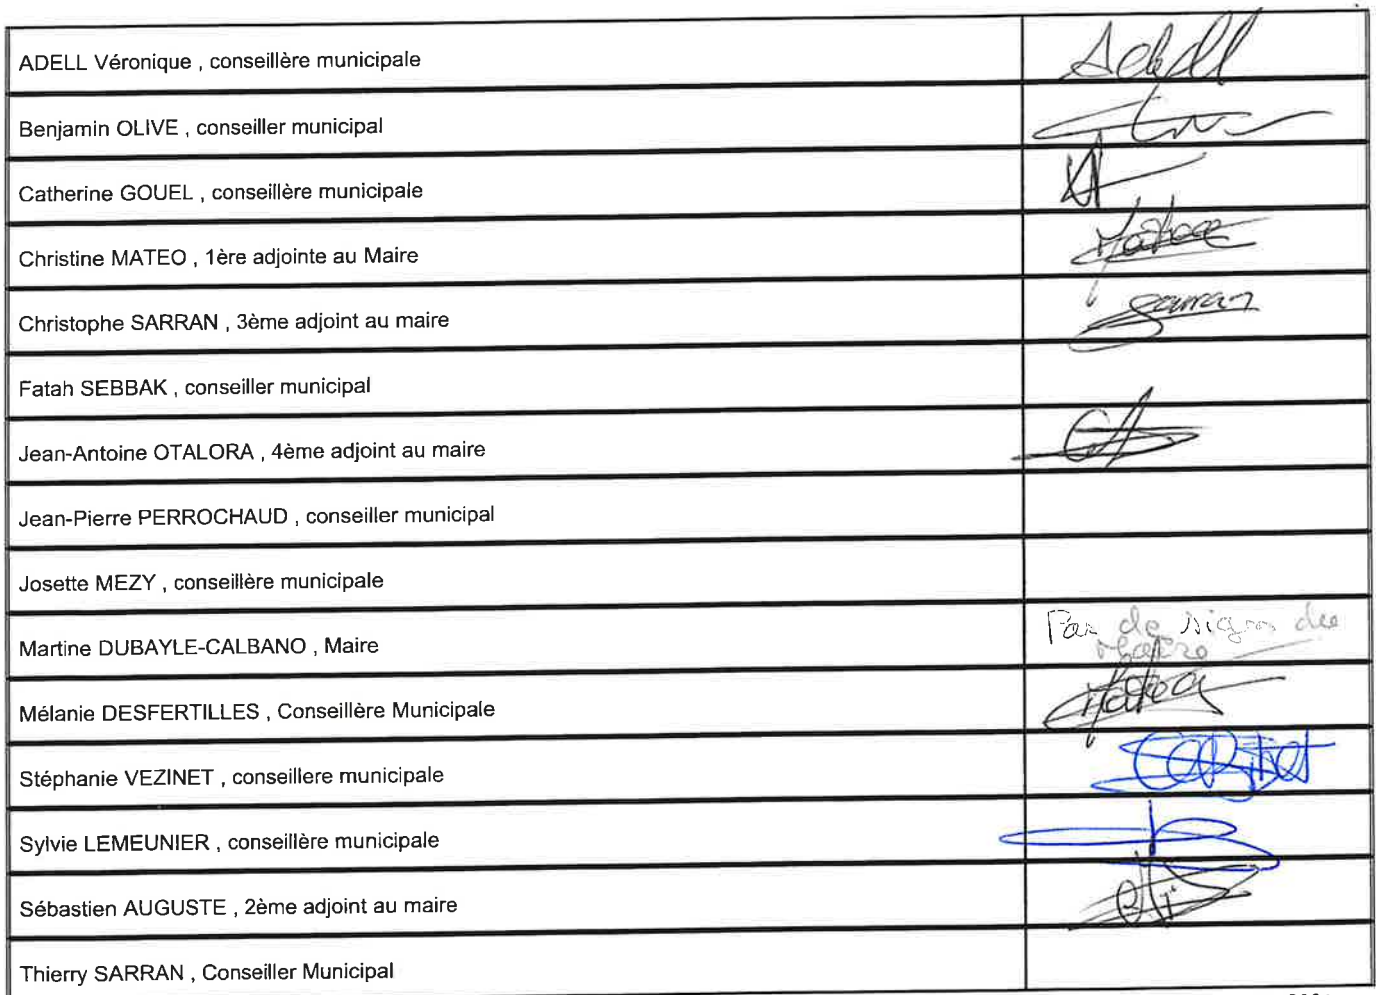 ADELL Véronique , conseillère municipale Adell
Benjamin OLIVE , conseiller municipal
Catherine GOUEL , conseillère municipale
Christine MATEO , 1ère adjointe au Maire Mateo
Christophe SARRAN , 3ème adjoint au maire Sarran
Fatah SEBBAK , conseiller municipal
Jean-Antoine OTALORA , 4ème adjoint au maire
Jean-Pierre PERROCHAUD , conseiller municipal
Josette MEZY , conseillère municipale
Martine DUBAYLE-CALBANO , Maire Pas de sign du
Mélanie DESFERTILLES , Conseillère Municipale
Stéphanie VEZINET , conseillere municipale
Sylvie LEMEUNIER , conseillère municipale
Sébastien AUGUSTE , 2ème adjoint au maire
Thierry SARRAN , Conseiller Municipal